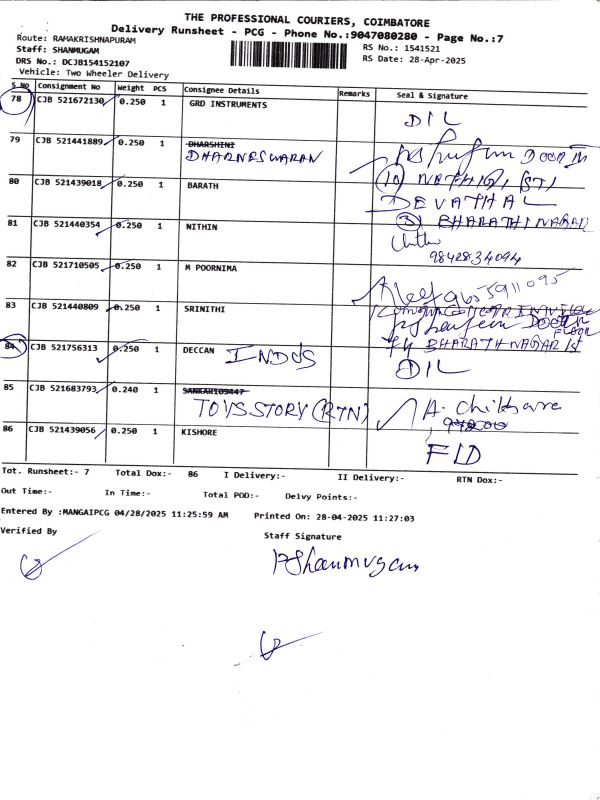 THE PROFESSIONAL COURIERS, COIMBATORE
Delivery Runsheet - PCG - Phone No.:9047080280 - Page No.:7
Route: RAMAKRISHNAPURAM
Staff: SHANMUGAM
DRS No.: DCJB154152107
Vehicle: Two Wheeler Delivery
RS No.: 1541521
RS Date: 28-Apr-2025
S No Consignment No Weight PCS Consignee Details Remarks Seal & Signature
78 CJB 521672130 0.250 1 GRD INSTRUMENTS DIL
79 CJB 521441889 0.250 1 DHARSHINI
DHARNESWARAN
DOOR
80 CJB 521439018 0.250 1 BARATH
DEVATHAL
BHARATHI NAGAR
81 CJB 521440354 0.250 1 NITHIN
9842834094
82 CJB 521710505 0.250 1 M POORNIMA
83 CJB 521440809 0.250 1 SRINITHI
FLOOR
BHARATH NAGAR 1st
84 CJB 521756313 0.250 1 DECCAN INDUS DIL
85 CJB 521683793 0.240 1 SANKAR109447
TOYS STORY (RTN)
86 CJB 521439056 0.250 1 KISHORE FID
Tot. Runsheet:- 7 Total Dox:- 86 I Delivery:- II Delivery:- RTN Dox:-
Out Time:- In Time:- Total POD:- Delvy Points:-
Entered By :MANGAIPCG 04/28/2025 11:25:59 AM Printed On: 28-04-2025 11:27:03
Verified By Staff Signature
P Shanmugam